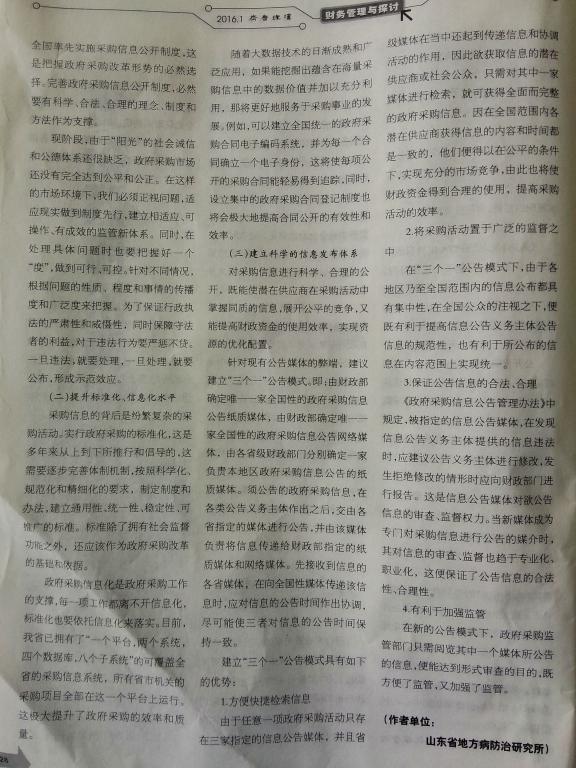 2016.1 齐鲁珠坛
财务管理与探讨
全国率先实施采购信息公开制度,这
是把握政府采购改革形势的必然选
择。完善政府采购信息公开制度,必然
要有科学、合法、合理的理念、制度和
方法作为支撑。
现阶段,由于“阳光”的社会诚信
和公德体系还很缺乏,政府采购市场
还没有完全达到公平和公正。在这样
的市场环境下,我们必须正视问题,适
应现实做到制度先行,建立相适应、可
操作、有成效的监管新体系。同时,在
处理具体问题时也要把握好一个
“度”,做到可行、可控。针对不同情况,
根据问题的性质、程度和事情的传播
度和广泛度来把握。为了保证行政执
法的严肃性和威慑性,同时保障守法
者的利益,对于违法行为要严惩不贷。
一旦违法,就要处理,一旦处理,就要
公布,形成示范效应。
(二)提升标准化、信息化水平
采购信息的背后是纷繁复杂的采
购活动。实行政府采购的标准化,这是
多年来从上到下所推行和倡导的,这
需要逐步完善体制机制,按照科学化、
规范化和精细化的要求,制定制度和
办法,建立通用性、统一性、稳定性、可
推广的标准。标准除了拥有社会监督
功能之外,还应该作为政府采购改革
的基础和依据。
政府采购信息化是政府采购工作
的支撑,每一项工作都离不开信息化,
标准化也要依托信息化来落实。目前,
我省已拥有了“一个平台,两个系统,
四个数据库,八个子系统”的可覆盖全
省的采购信息系统,所有省市机关的
采购项目全部在这一个平台上运行。
这极大提升了政府采购的效率和质
量。
随着大数据技术的日渐成熟和广
泛应用,如果能挖掘出蕴含在海量采
购信息中的数据价值并加以充分利
用,那将更好地服务于采购事业的发
展。例如,可以建立全国统一的政府采
购合同电子编码系统,并为每一个合
同确立一个电子身份,这将使每项公
开的采购合同能轻易得到追踪,同时,
设立集中的政府采购合同登记制度也
将会极大地提高合同公开的有效性和
效率。
(三)建立科学的信息发布体系
对采购信息进行科学、合理的公
开,既能使潜在供应商在采购活动中
掌握同质的信息,展开公平的竞争,又
能提高财政资金的使用效率,实现资
源的优化配置。
针对现有公告媒体的弊端,建议
建立“三个一”公告模式。即:由财政部
确定唯一一家全国性的政府采购信息
公告纸质媒体,由财政部确定唯一一
家全国性的政府采购信息公告网络媒
体,由各省级财政部门分别确定一家
负责本地区政府采购信息公告的纸
质媒体。须公告的政府采购信息,在
各类公告义务主体作出之后,交由各
省指定的媒体进行公告,并由该媒体
负责将信息传递给财政部指定的纸
质媒体和网络媒体。先接收到信息的
各省媒体,在向全国性媒体传递该信
息时,应对信息的公告时间作出协调,
尽可能使三者对信息的公告时间保
持一致。
建立“三个一”公告模式具有如下
的优势:
1.方便快捷检索信息
由于任意一项政府采购活动只存
在三家指定的信息公告媒体,并且省
级媒体在当中还起到传递信息和协调
活动的作用,因此欲获取信息的潜在
供应商或社会公众,只需对其中一家
媒体进行检索,就可获得全面而完整
的政府采购信息。因在全国范围内各
潜在供应商获得信息的内容和时间都
是一致的,他们便得以在公平的条件
下,实现充分的市场竞争,由此也将使
财政资金得到合理的使用,提高采购
活动的效率。
2.将采购活动置于广泛的监督之
中
在“三个一”公告模式下,由于各
地区乃至全国范围内的信息公布都具
有集中性,在全国公众的注视之下,便
既有利于提高信息公告义务主体公告
信息的规范性,也有利于所公布的信
息在内容范围上实现统一。
3.保证公告信息的合法、合理
《政府采购信息公告管理办法》中
规定,被指定的信息公告媒体,在发现
信息公告义务主体提供的信息违法
时,应建议公告义务主体进行修改,发
生拒绝修改的情形时应向财政部门进
行报告。这是信息公告媒体对欲公告
信息的审查、监督权力。当新媒体成为
专门对采购信息进行公告的媒介时,
其对信息的审查、监督也趋于专业化、
职业化,这便保证了公告信息的合法
性、合理性。
4.有利于加强监管
在新的公告模式下,政府采购监
管部门只需阅览其中一个媒体所公告
的信息,便能达到形式审查的目的,既
方便了监管,又加强了监管。
(作者单位:
山东省地方病防治研究所)
28